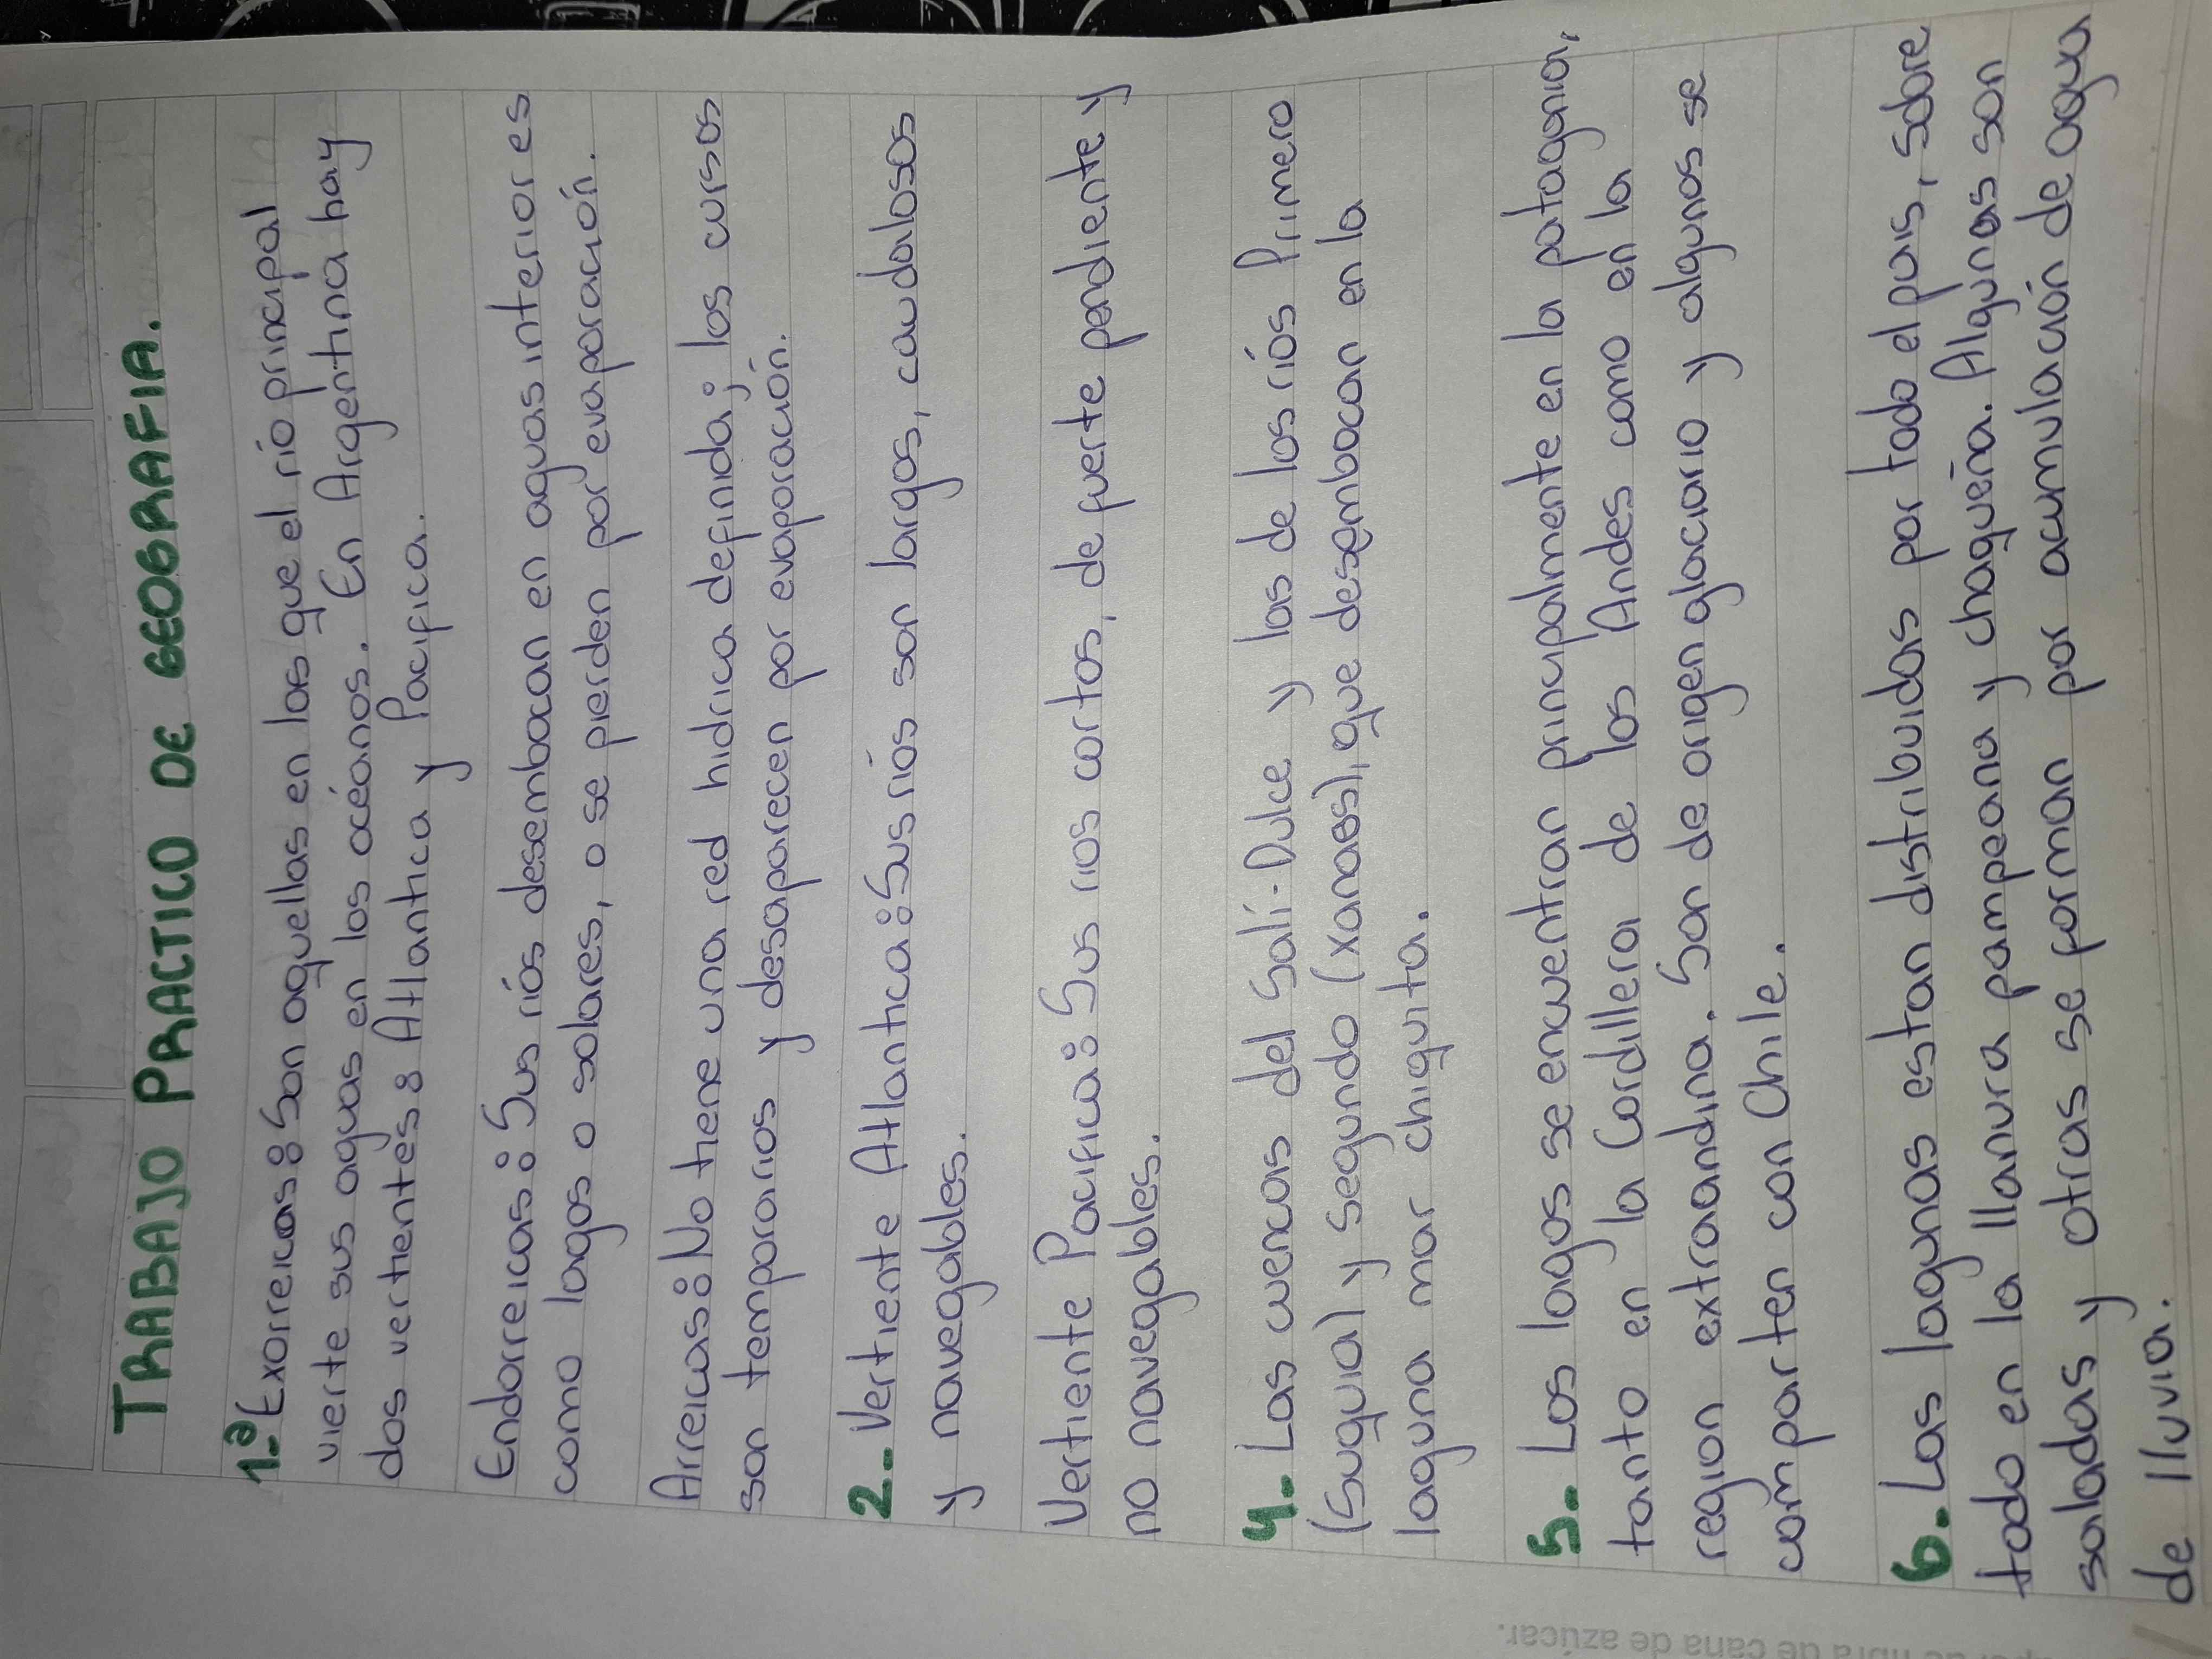 TRABAJO PRACTICO DE GEOGRAFIA.
1.ª Exorreicas: Son aquellas en las que el río principal
vierte sus aguas en los océanos. En Argentina hay
dos vertientes: Atlantica y Pacifica.
Endorreicas: Sus ríos desembocan en aguas interior es
como lagos o salares, o se pierden por evaporación.
Arreicas: No tiene una red hidrica definida; los cursos
son temporarios y desaparecen por evaporación.
2.- Vertiente Atlantica: Sus ríos son largos, caudalosos
y navegables.
Vertiente Pacifica: Sus rios cortos, de fuerte pendiente y
no navegables.
4.- Las cuencas del Salí-Dulce y las de los ríos Primero
(Suquia) y Segundo (xanaes), que desembocan en la
laguna mar chiquita.
5.- Los lagos se encuentran principalmente en la patagonia,
tanto en la Cordillera de los Andes como en la
region extraandina. Son de origen glaciario y algunos se
comparten con Chile.
6.- Las lagunas estan distribuidas por todo el pais, sobre
todo en la llanura pampeana y chaqueña. Algunas son
saladas y otras se forman por acumulación de agua
de lluvia.
de caña de azúcar.